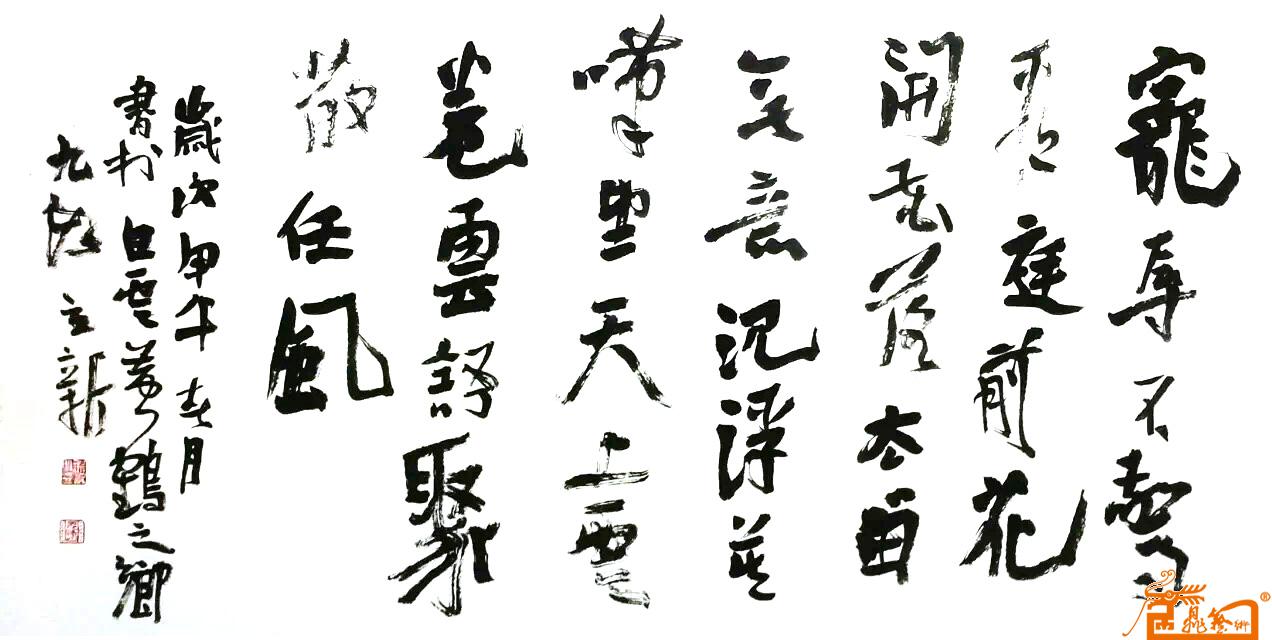 寵辱不驚
看庭前花
開花落去留
無意沉浮莫
嘆望天上雲
卷雲舒聚
散任風
歲次甲午春月
書於白雲黃鶴之鄉
九
立新